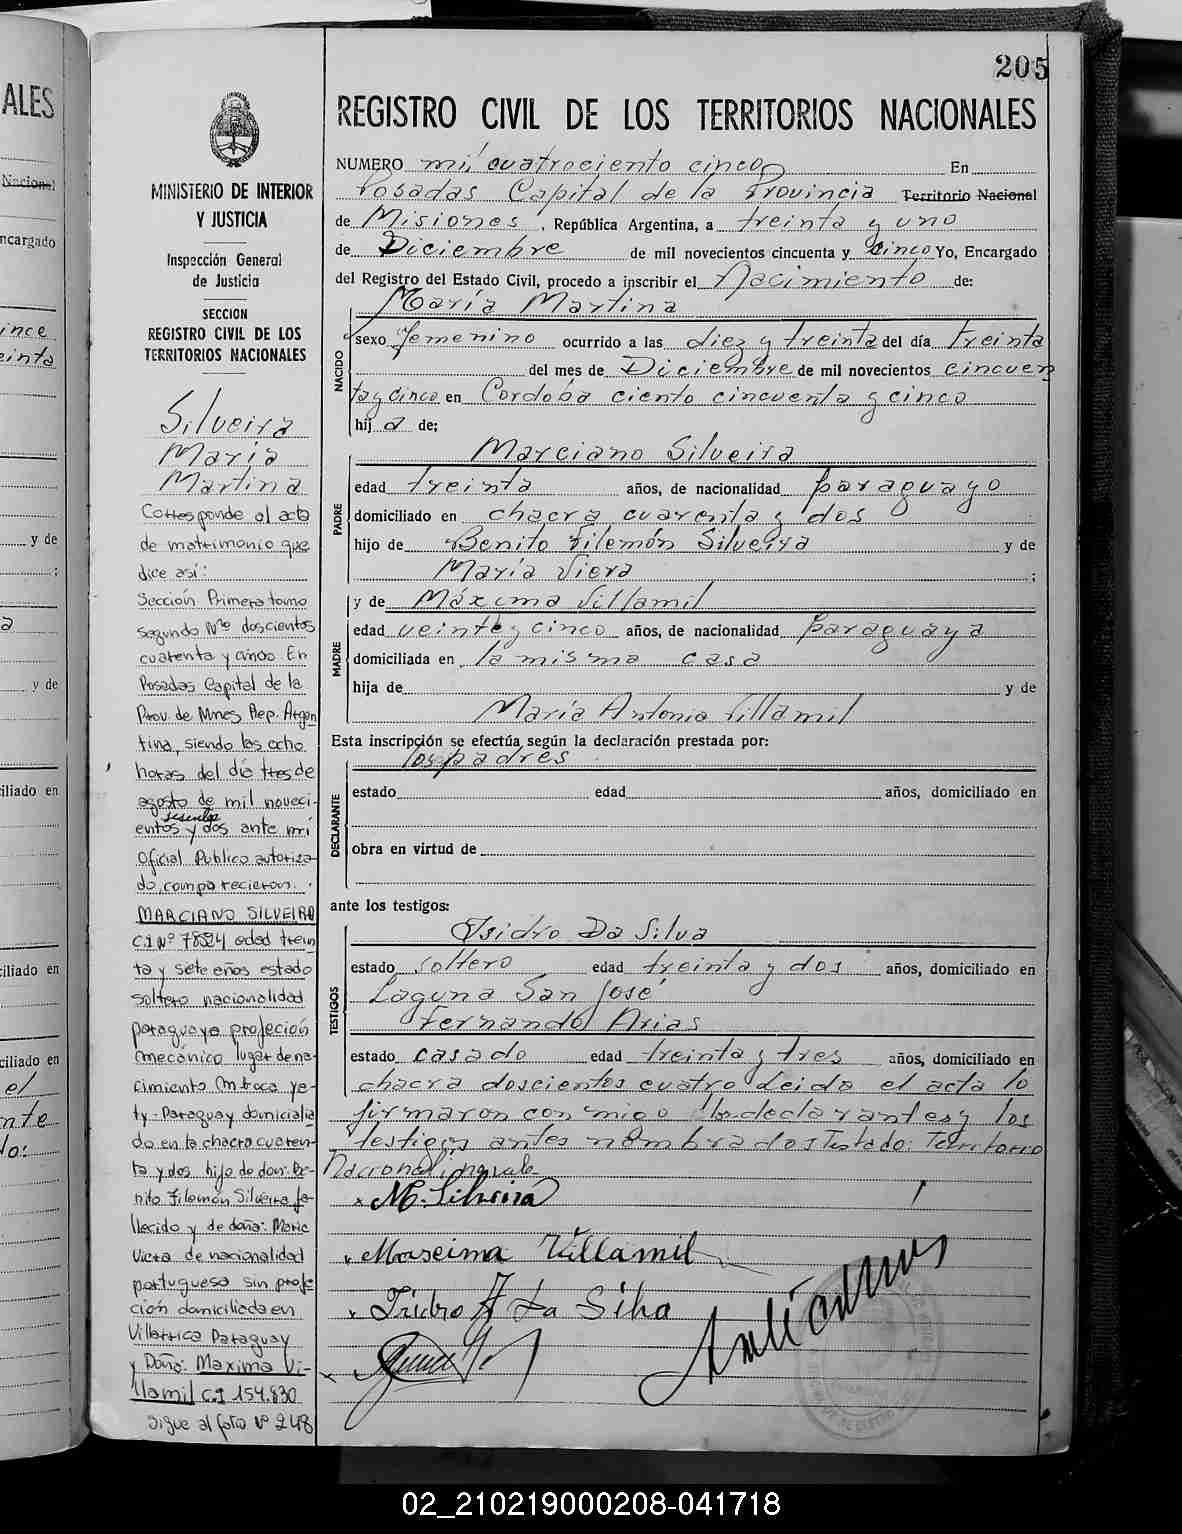 ALES
Nacional
ncargado
ince
einta
y de
a
y de
ciliado en
ciliado en
ciliado en
el
nte
205
MINISTERIO DE INTERIOR
Y JUSTICIA
Inspección General
de Justicia
SECCION
REGISTRO CIVIL DE LOS
TERRITORIOS NACIONALES
Silveira
María
Martina
Corresponde al acta
de matrimonio que
dice así:
Sección Primera tomo
segundo Nro doscientos
cuarenta y cinco En
Posadas Capital de la
Prov. de Mnes Rep. Argen
tina, siendo las ocho
horas del día tres de
agosto de mil noveci-
sesenta
entos y dos ante mi
Oficial Publico autoriza
do, comparecieron.
MARCIANO SILVEIRA
C.I Nº 78594 edad trein
ta y siete años estado
soltero nacionalidad
paraguaya profeción
mecánico lugar de na-
cimiento Mboca ya-
ty - Paraguay domicilia
do en la chacra cuaren-
ta y dos hijo de don: Be-
nito Filemón Silveira fa-
llecido y de doña: Maria
Viera de nacionalidad
portuguesa sin profe-
ción domiciliada en
Villarrica Paraguay
y Doña: Maxima Vi-
llamil C.I 154.830
Sigue al folio Nº 248
REGISTRO CIVIL DE LOS TERRITORIOS NACIONALES
NUMERO mil cuatrociento cinco En
Posadas Capital de la Provincia Territorio Nacional
de Misiones, República Argentina, a treinta y uno
de Diciembre de mil novecientos cincuenta y cinco Yo, Encargado
del Registro del Estado Civil, procedo a inscribir el Nacimiento de:
María Martina
NACIDO
sexo femenino ocurrido a las diez y treinta del día treinta
del mes de Diciembre de mil novecientos cincuen
ta y cinco en Cordoba ciento cincuenta y cinco
hij a de;
Marciano Silveira
PADRE
edad treinta años, de nacionalidad paraguayo
domiciliado en chacra cuarenta y dos
hijo de Benito Filemón Silveira y de
María Viera ;
y de Máxima Villamil
MADRE
edad veinte y cinco años, de nacionalidad paraguaya
domiciliada en la misma casa
hija de y de
María Antonia Villamil
Esta inscripción se efectúa según la declaración prestada por:
los padres
DECLARANTE
estado edad años, domiciliado en
obra en virtud de
ante los testigos:
Isidro Da Silva
TESTIGOS
estado soltero edad treinta y dos años, domiciliado en
Laguna San José
Fernando Arias
estado casado edad treinta y tres años, domiciliado en
chacra doscientos cuatro Leida el acta lo
firmaron conmigo los declarantes y los
testigos antes nombrados Testado: Territorio
Nacional no vale
M. Silveira
Maxcima Villamil
Isidro Da Silva
02_210219000208-041718